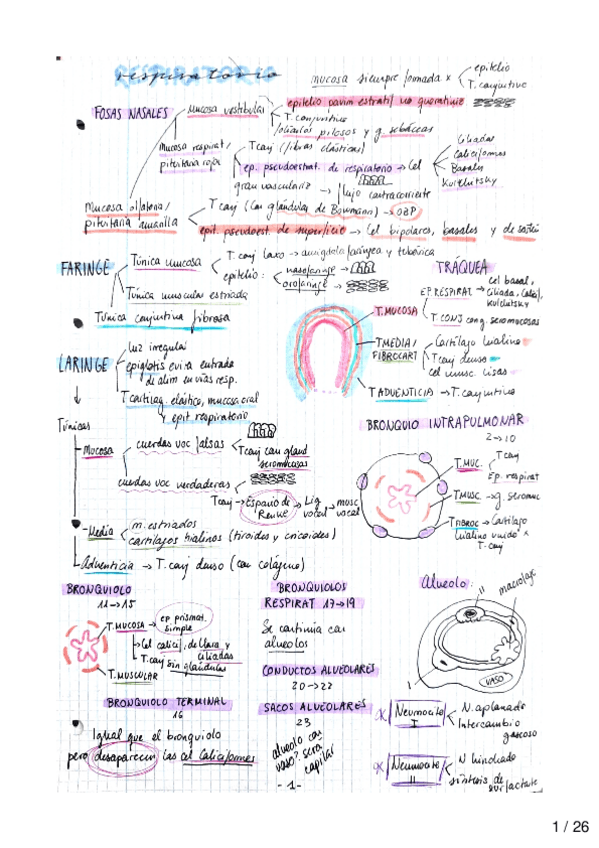 RESPIRATORIO
mucosa siempre formada x
epitelio
T. conjuntivo
FOSAS NASALES
Mucosa vestibular
epitelio pavim estratif no queratiniz
T. conjuntivo
folículos pilosos y g. sebáceas
Mucosa respirat/
pituitaria roja
T conj (fibras elásticas)
ep. pseudoestrat. de respiratorio → Cel
Ciliadas
Caliciformes
Basales
Kultchutsky
gran vasculariz → flujo contracorriente
Mucosa olfatoria/
pituitaria amarilla
T conj (con glándulas de Bowmann) → OBP
epit. pseudoest. de superficie → Cel bipolares, basales y de sostén
FARINGE
Túnica mucosa
T. conj laxo → amígdala faríngea y tubárica
epitelio:
nasofaringe →
orofaringe →
Túnica muscular estriada
Túnica conjuntiva fibrosa
TRÁQUEA
EP RESPIRAT →
cel basal,
ciliada, calici,
kultchutsky
T. CONJ con g. seromucosas
T. MUCOSA
T MEDIA/
FIBROCART
Cartílago hialino
T conj denso
Cel musc. lisas
T ADVENTICIA → T. conjuntivo
LARINGE
luz irregular
epiglotis evita entrada
de alim en vías resp.
T cartílag. elástico, mucosa oral
y epit. respiratorio
Túnicas
Mucosa
cuerdas voc falsas
T conj con gland
seromucosas
cuerdas voc verdaderas
T conj → Espacio de
Reinke → Lig
vocal → musc
vocal
Media
m. estriados
cartílagos hialinos (tiroides y cricoides)
Adventicia → T. conj denso (con colágeno)
BRONQUIO INTRAPULMONAR
2 → 10
T. MUC.
T conj
Ep. respirat
T MUSC. → g. seromuc
T FIBROC → Cartílago
hialino unido x
T. conj
BRONQUIOLO
11 → 15
T. MUCOSA →
ep prismat.
simple
Cel calici, de Clara y
ciliadas
T conj sin glándulas
T. MUSCULAR
BRONQUIOLO TERMINAL
16
Igual que el bronquiolo
pero desaparecen las cel Caliciformes
BRONQUIOLOS
RESPIRAT 17 → 19
Se continúa con
alveolos
CONDUCTOS ALVEOLARES
20 → 22
SACOS ALVEOLARES
23
alveolo con
vaso? será
capilar
Alveolo:
II
macrófago
I
VASO
Neumocito
I
N. aplanado
Intercambio
gaseoso
Neumocito
II
N hinchado
síntesis de
surfactante
- 1 -
1 / 26